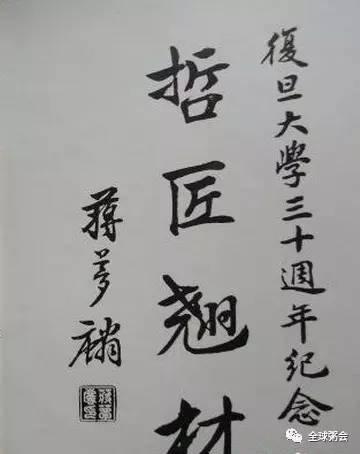 復旦大學三十週年纪念
哲匠翘材
蔣夢麟
全球粥会